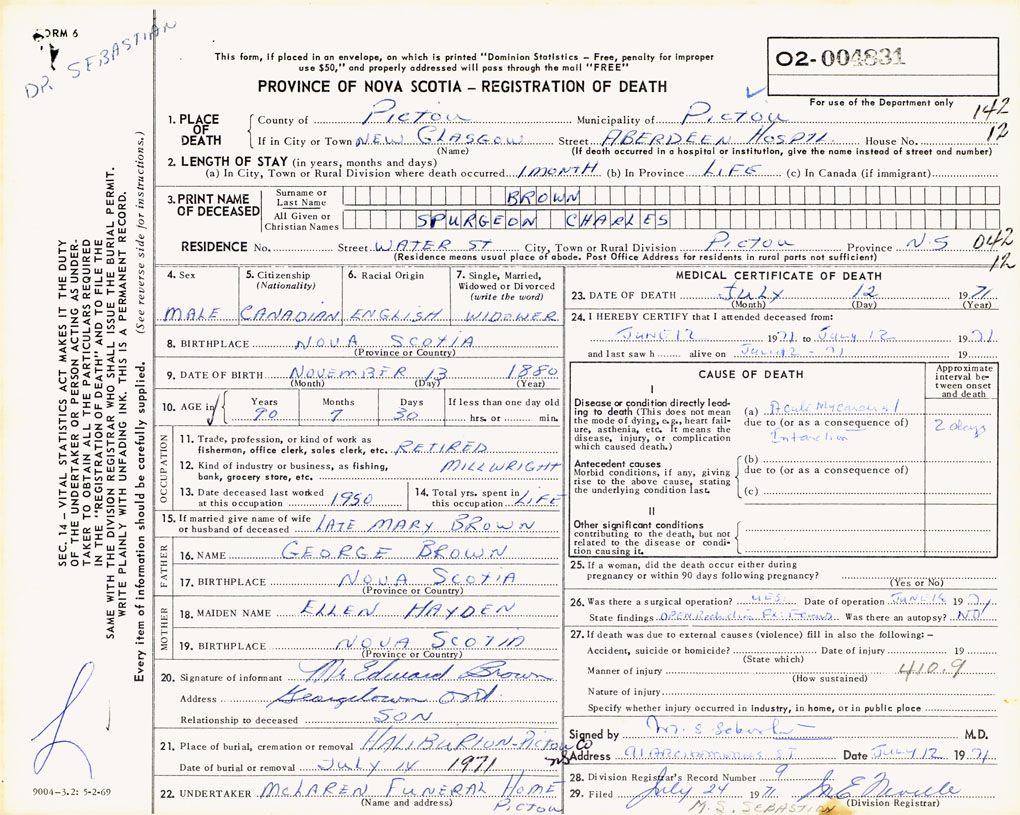 FORM 6
DR. SEBASTIAN
This form, if placed in an envelope, on which is printed "Dominion Statistics – Free, penalty for improper
use $50," and properly addressed will pass through the mail "FREE"
PROVINCE OF NOVA SCOTIA – REGISTRATION OF DEATH
02-004831
For use of the Department only
142
12
1. PLACE OF DEATH
County of Pictou Municipality of Pictou
If in City or Town NEW GLASGOW Street ABERDEEN HOSPTL House No.
(Name) (If death occurred in a hospital or institution, give the name instead of street and number)
2. LENGTH OF STAY (in years, months and days)
(a) In City, Town or Rural Division where death occurred 1 MONTH (b) In Province LIFE (c) In Canada (if immigrant)
3. PRINT NAME OF DECEASED
Surname or Last Name BROWN
All Given or Christian Names SPURGEON CHARLES
RESIDENCE No. Street WATER ST City, Town or Rural Division PICTOU Province N.S
(Residence means usual place of abode. Post Office Address for residents in rural parts not sufficient)
042
12
4. Sex MALE
5. Citizenship (Nationality) CANADIAN
6. Racial Origin ENGLISH
7. Single, Married, Widowed or Divorced (write the word) WIDOWER
8. BIRTHPLACE NOVA SCOTIA
(Province or Country)
9. DATE OF BIRTH NOVEMBER 13 1880
(Month) (Day) (Year)
10. AGE in Years 90 Months 7 Days 30 If less than one day old hrs. or min.
OCCUPATION
11. Trade, profession, or kind of work as
fisherman, office clerk, sales clerk, etc. RETIRED
12. Kind of industry or business, as fishing, MILLWRIGHT
bank, grocery store, etc.
13. Date deceased last worked at this occupation 1950
14. Total yrs. spent in this occupation LIFE
15. If married give name of wife
or husband of deceased LATE MARY BROWN
FATHER
16. NAME GEORGE BROWN
17. BIRTHPLACE NOVA SCOTIA
(Province or Country)
MOTHER
18. MAIDEN NAME ELLEN HAYDEN
19. BIRTHPLACE NOVA SCOTIA
(Province or Country)
20. Signature of informant Mr Edward Brown
Address Georgetown Ont.
Relationship to deceased SON
21. Place of burial, cremation or removal HALIBURTON-PICTOU CO
NS
Date of burial or removal JULY 14 1971
22. UNDERTAKER McLAREN FUNERAL HOME
(Name and address) PICTOU
MEDICAL CERTIFICATE OF DEATH
23. DATE OF DEATH JULY 12 1971
(Month) (Day) (Year)
24. I HEREBY CERTIFY that I attended deceased from:
JUNE 12 1971 to JULY 12 1971
and last saw h alive on JULY 12 - 71 19
CAUSE OF DEATH
Approximate interval between onset and death
I
Disease or condition directly leading to death (This does not mean the mode of dying, e.g., heart failure, asthenia, etc. It means the disease, injury, or complication which caused death.)
(a) Acute Myocardial
due to (or as a consequence of)
Infarction
2 days
Antecedent causes
Morbid conditions, if any, giving rise to the above cause, stating the underlying condition last.
(b)
due to (or as a consequence of)
(c)
II
Other significant conditions
contributing to the death, but not related to the disease or condition causing it.
25. If a woman, did the death occur either during
pregnancy or within 90 days following pregnancy?
(Yes or No)
26. Was there a surgical operation? YES Date of operation JUNE 1971
State findings OPEN Reduction Was there an autopsy? NO
27. If death was due to external causes (violence) fill in also the following: –
Accident, suicide or homicide? Date of injury 19
(State which)
Manner of injury 410.9
(How sustained)
Nature of injury
Specify whether injury occurred in industry, in home, or in public place
Signed by M. S Sebastian M.D.
Address ST Date JULY 12 1971
28. Division Registrar's Record Number 9
29. Filed July 24 1971
(Division Registrar)
M. S. SEBASTIAN
SEC. 14 – VITAL STATISTICS ACT MAKES IT THE DUTY
OF THE UNDERTAKER OR PERSON ACTING AS UNDER-
TAKER TO OBTAIN ALL THE PARTICULARS REQUIRED
IN THE "REGISTRATION OF DEATH" AND TO FILE THE
SAME WITH THE DIVISION REGISTRAR WHO SHALL ISSUE THE BURIAL PERMIT.
WRITE PLAINLY WITH UNFADING INK. THIS IS A PERMANENT RECORD.
Every item of information should be carefully supplied. (See reverse side for instructions.)
9004-3.2: 5-2-69